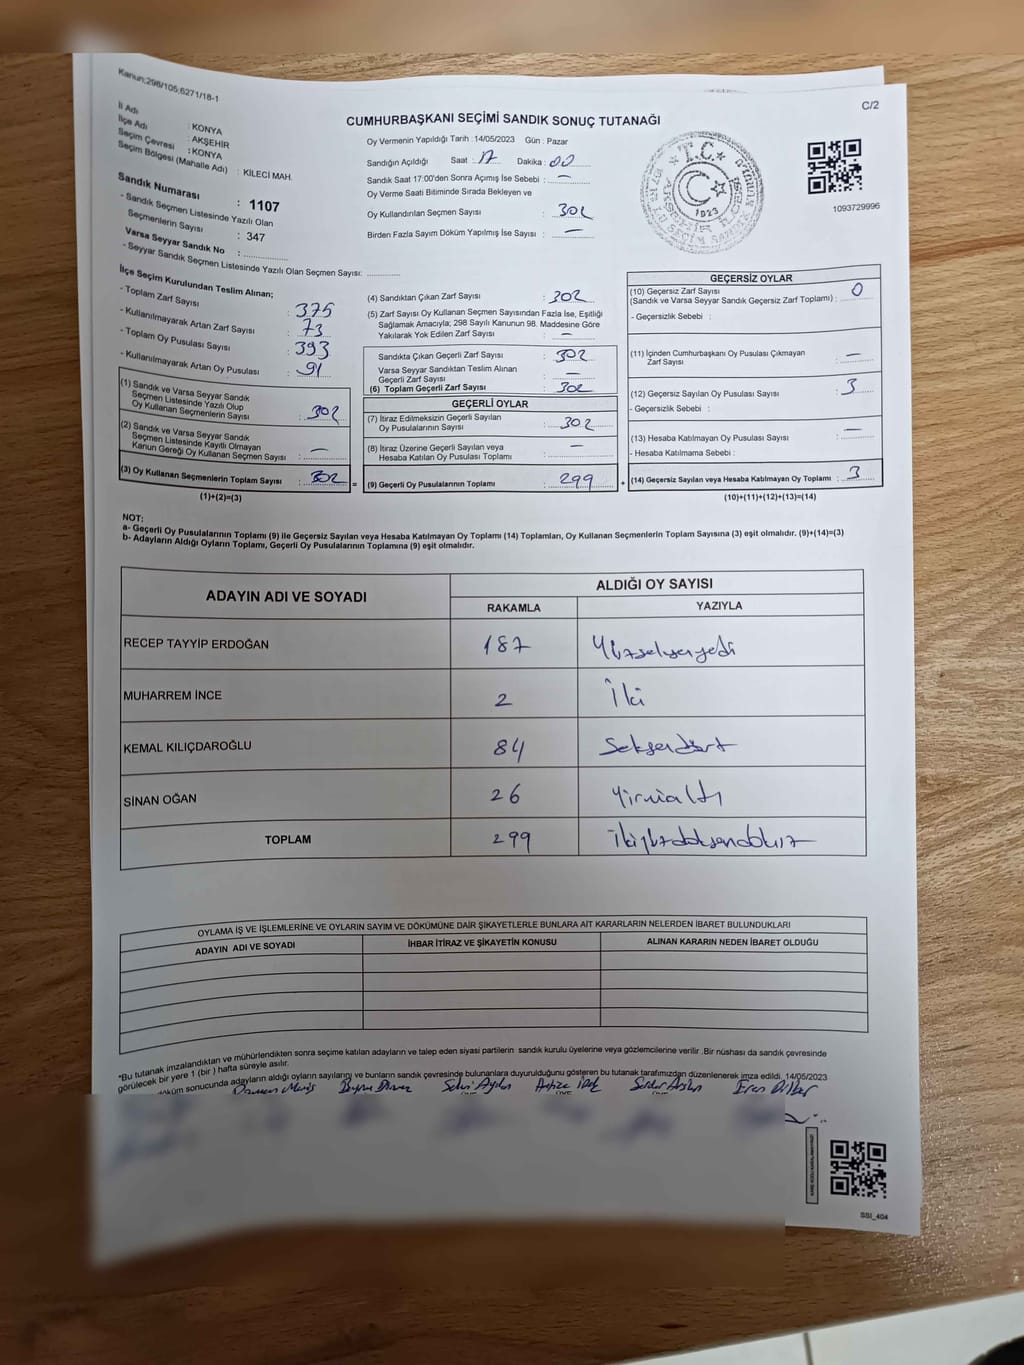 Kanun;298/105;6271/18-1
C/2
İl Adı : KONYA
İlçe Adı : AKŞEHİR
Seçim Çevresi : KONYA
Seçim Bölgesi (Mahalle Adı) : KİLECİ MAH.
Sandık Numarası : 1107
- Sandık Seçmen Listesinde Yazılı Olan
Seçmenlerin Sayısı : 347
Varsa Seyyar Sandık No :
- Seyyar Sandık Seçmen Listesinde Yazılı Olan Seçmen Sayısı:
CUMHURBAŞKANI SEÇİMİ SANDIK SONUÇ TUTANAĞI
Oy Vermenin Yapıldığı Tarih :14/05/2023 Gün : Pazar
Sandığın Açıldığı Saat : 17 Dakika : 00
Sandık Saat 17:00'den Sonra Açımış İse Sebebi : —
Oy Verme Saati Bitiminde Sırada Bekleyen ve
Oy Kullandırılan Seçmen Sayısı : 302
Birden Fazla Sayım Döküm Yapılmış İse Sayısı : —
T.C.
1923
1093729996
İlçe Seçim Kurulundan Teslim Alınan;
- Toplam Zarf Sayısı : 375
- Kullanılmayarak Artan Zarf Sayısı : 73
- Toplam Oy Pusulası Sayısı : 393
- Kullanılmayarak Artan Oy Pusulası : 91
(1) Sandık ve Varsa Seyyar Sandık
Seçmen Listesinde Yazılı Olup
Oy Kullanan Seçmenlerin Sayısı : 302
(2) Sandık ve Varsa Seyyar Sandık
Seçmen Listesinde Kayıtlı Olmayan
Kanun Gereği Oy Kullanan Seçmen Sayısı : —
(3) Oy Kullanan Seçmenlerin Toplam Sayısı : 302
(1)+(2)=(3)
(4) Sandıktan Çıkan Zarf Sayısı : 302
(5) Zarf Sayısı Oy Kullanan Seçmen Sayısından Fazla İse, Eşitliği
Sağlamak Amacıyla; 298 Sayılı Kanunun 98. Maddesine Göre
Yakılarak Yok Edilen Zarf Sayısı : —
Sandıkta Çıkan Geçerli Zarf Sayısı : 302
Varsa Seyyar Sandıktan Teslim Alınan
Geçerli Zarf Sayısı : —
(6) Toplam Geçerli Zarf Sayısı : 302
GEÇERLİ OYLAR
(7) İtiraz Edilmeksizin Geçerli Sayılan
Oy Pusulalarının Sayısı : 302
(8) İtiraz Üzerine Geçerli Sayılan veya
Hesaba Katılan Oy Pusulası Toplamı : —
= (9) Geçerli Oy Pusulalarının Toplamı : 299 +
GEÇERSİZ OYLAR
(10) Geçersiz Zarf Sayısı
(Sandık ve Varsa Seyyar Sandık Geçersiz Zarf Toplamı) : 0
- Geçersizlik Sebebi :
(11) İçinden Cumhurbaşkanı Oy Pusulası Çıkmayan
Zarf Sayısı : —
(12) Geçersiz Sayılan Oy Pusulası Sayısı : 3
- Geçersizlik Sebebi :
(13) Hesaba Katılmayan Oy Pusulası Sayısı : —
- Hesaba Katılmama Sebebi :
(14) Geçersiz Sayılan veya Hesaba Katılmayan Oy Toplamı : 3
(10)+(11)+(12)+(13)=(14)
NOT:
a- Geçerli Oy Pusulalarının Toplamı (9) ile Geçersiz Sayılan veya Hesaba Katılmayan Oy Toplamı (14) Toplamları, Oy Kullanan Seçmenlerin Toplam Sayısına (3) eşit olmalıdır. (9)+(14)=(3)
b- Adayların Aldığı Oyların Toplamı, Geçerli Oy Pusulalarının Toplamına (9) eşit olmalıdır.
ADAYIN ADI VE SOYADI ALDIĞI OY SAYISI
RAKAMLA YAZIYLA
RECEP TAYYİP ERDOĞAN 187 Yüzseksenyedi
MUHARREM İNCE 2 İki
KEMAL KILIÇDAROĞLU 84 Seksendört
SİNAN OĞAN 26 Yirmialtı
TOPLAM 299 İkiyüzdoksandokuz
OYLAMA İŞ VE İŞLEMLERİNE VE OYLARIN SAYIM VE DÖKÜMÜNE DAİR ŞİKAYETLERLE BUNLARA AİT KARARLARIN NELERDEN İBARET BULUNDUKLARI
ADAYIN ADI VE SOYADI İHBAR İTİRAZ VE ŞİKAYETİN KONUSU ALINAN KARARIN NEDEN İBARET OLDUĞU
*Bu tutanak imzalandıktan ve mühürlendikten sonra seçime katılan adayların ve talep eden siyasi partilerin sandık kurulu üyelerine veya gözlemcilerine verilir .Bir nüshası da sandık çevresinde
görülecek bir yere 1 (bir ) hafta süreyle asılır.
döküm sonucunda adayların aldığı oyların sayılarını ve bunların sandık çevresinde bulunanlara duyurulduğunu gösteren bu tutanak tarafımızdan düzenlenerek imza edildi. 14/05/2023
Selvi Aydın Serdar Aslan Eren Dilber
SSI_404